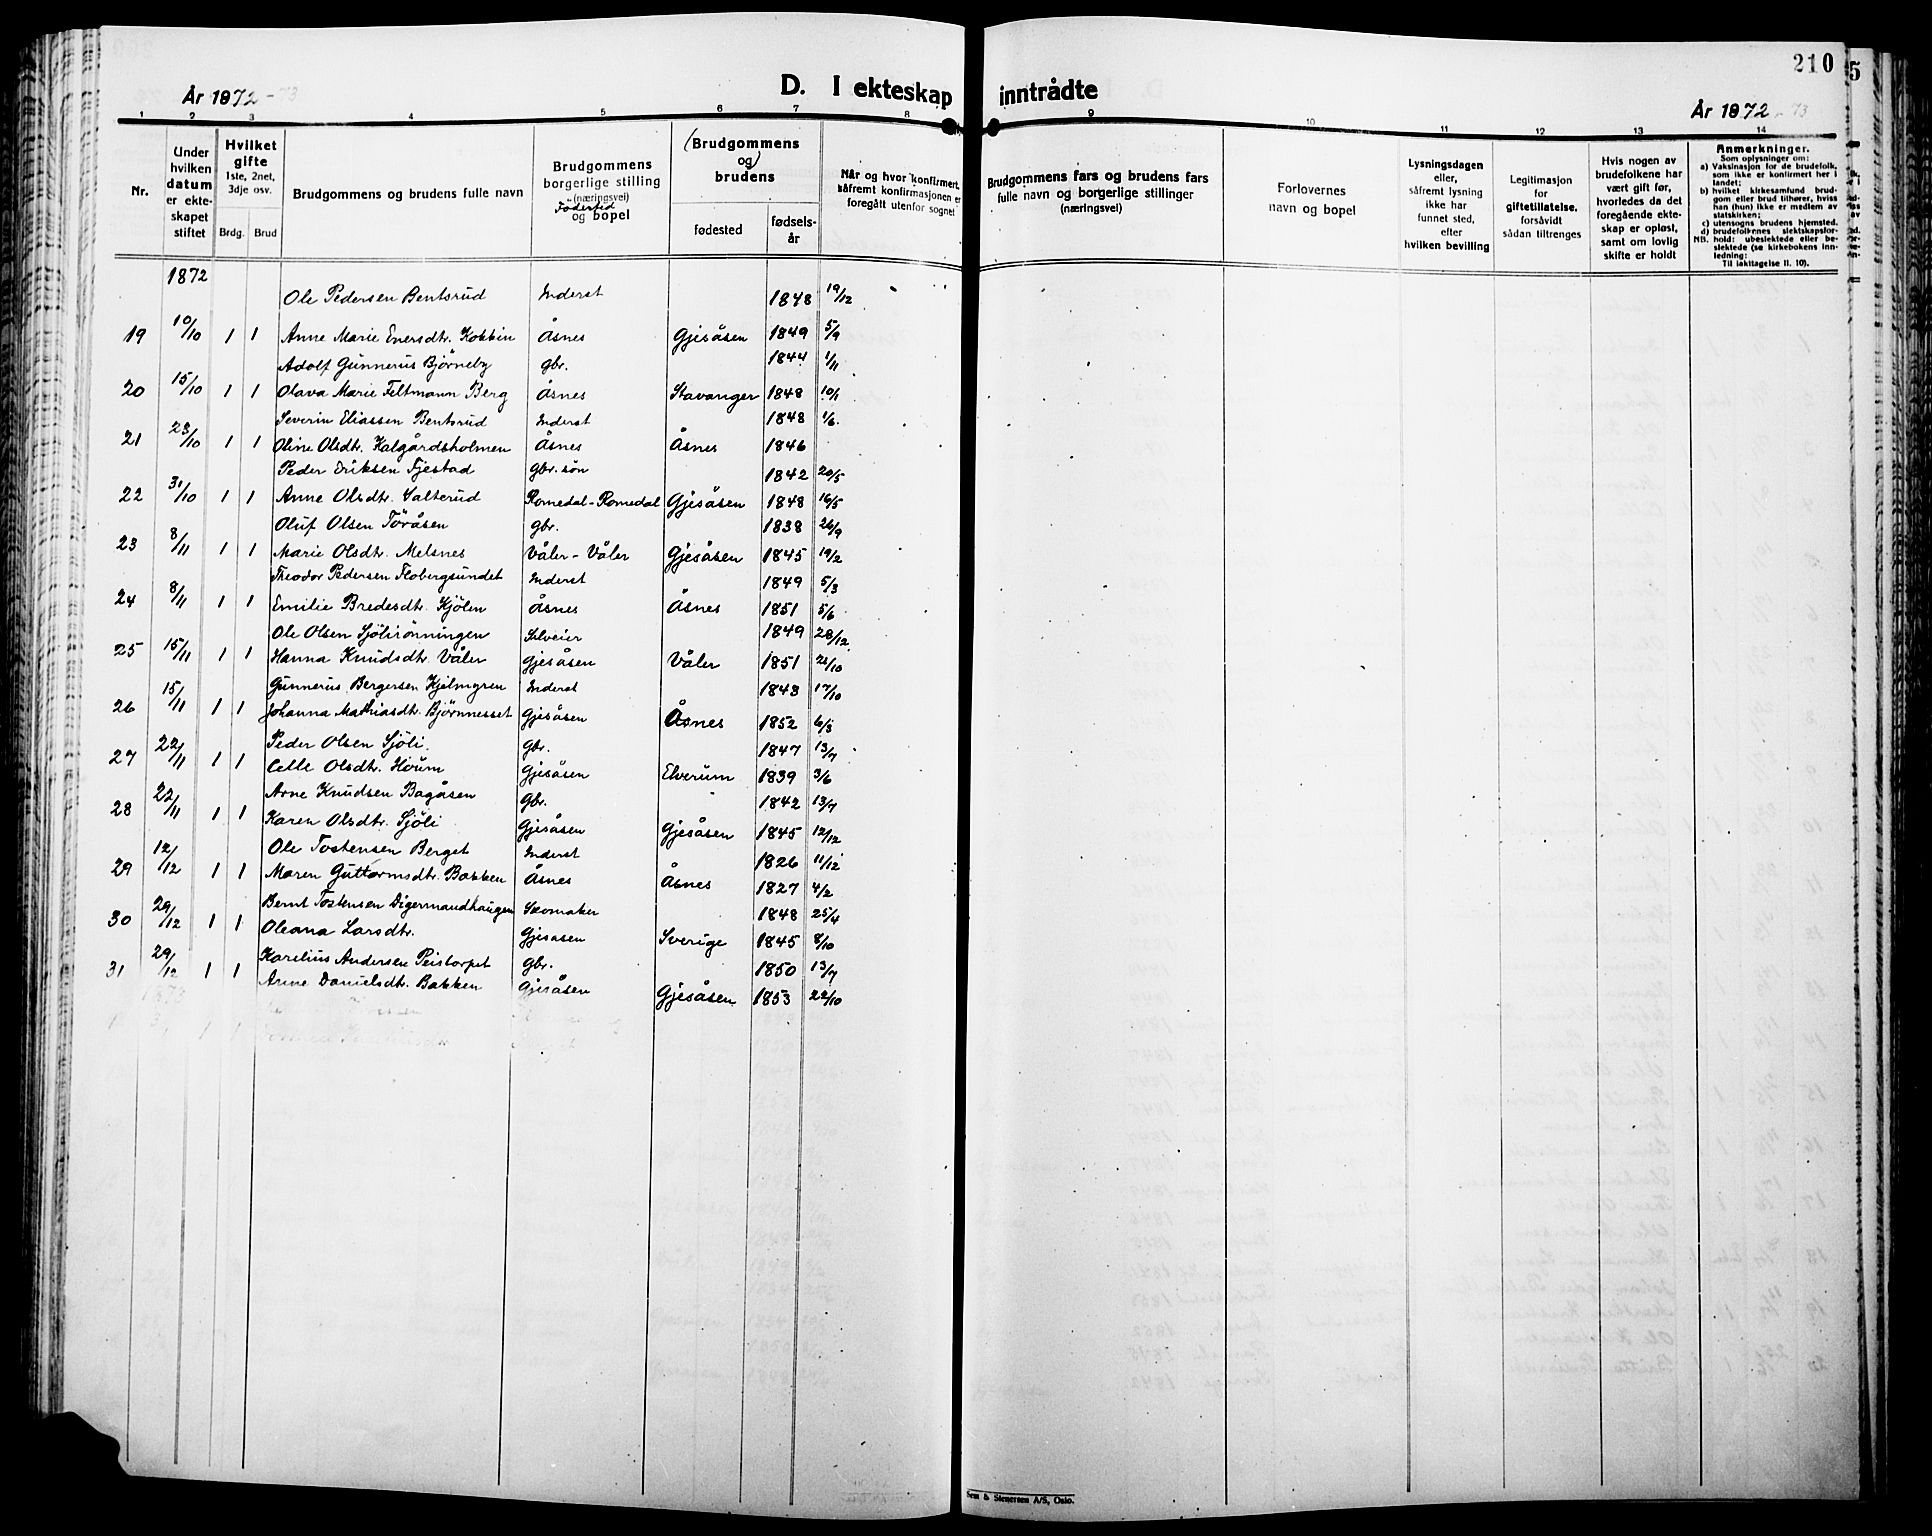 210
5
År 1872-73
D. I ekteskap inntrådte
År 1872-73
1 2 3 4 5 6 7 8 9 10 11 12 13 14
Nr.
Under hvilken datum er ekteskapet stiftet
Hvilket gifte 1ste, 2net, 3dje osv.
Brdg. Brud
Brudgommens og brudens fulle navn
Brudgommens borgerlige stilling (næringsvei) Fødested og bopel
(Brudgommens og) brudens
fødested
fødselsår
Når og hvor konfirmert, såfremt konfirmasjonen er foregått utenfor sognet
Brudgommens fars og brudens fars fulle navn og borgerlige stillinger (næringsvei)
Forlovernes navn og bopel
Lysningsdagen eller, såfremt lysning ikke har funnet sted, efter hvilken bevilling
Legitimasjon for giftetillatelse, forsåvidt sådan tiltrenges
Hvis nogen av brudefolkene har vært gift før, hvorledes da det foregående ekteskap er opløst, samt om lovlig skifte er holdt
Anmerkninger.
Som oplysninger om:
a) Vaksinasjon for de brudefolk, som ikke er konfirmert her i landet;
b) hvilket kirkesamfund brudgom eller brud tilhører, hviss han (hun) ikke er medlem av statskirken;
c) utensogns brudens hjemsted.
d) brudefolkenes slektskapsforhold: ubeslektede eller beslektede (se kirkebokens innledning;
NB. Til iakttagelse II. 10).
1872
Ole Pedersen Bentsrud Inderst 1848 19/12
19 10/10 1 1 Anne Marie Enersdtr. Kokkin Åsnes Gjesåsen 1849 5/9
Adolf Gunnerus Bjørneby gbr. 1844 1/11
20 15/10 1 1 Olava Marie Feltmann Berg Åsnes Stavanger 1848 10/1
Severin Eliassen Bentsrud Inderst 1848 1/6
21 23/10 1 1 Oline Olsdtr. Kalgårdsholmen Åsnes Åsnes 1846
Peder Eriksen Fjestad gbr. søn 1842 20/5
22 31/10 1 1 Anne Olsdtr. Salterud Romedal-Romedal Gjesåsen 1848 16/5
Oluf Olsen Töråsen gbr. 1838 26/9
23 8/11 1 1 Marie Olsdtr. Melsnes Våler-Våler Gjesåsen 1845 19/2
Theodor Pedersen Flobergsundet Inderst 1849 5/3
24 8/11 1 1 Emilie Bredesdtr. Kjölen Åsnes Åsnes 1851 5/6
Ole Olsen Sjölirönningen Selveier 1849 28/12
25 15/11 1 1 Hanna Knudsdtr. Våler Gjesåsen Våler 1851 21/10
Gunnerus Bergersen Hjelmgren Inderst 1843 17/10
26 15/11 1 1 Johanna Mathiasdtr. Björnnesset Gjesåsen Åsnes 1852 6/3
Peder Olsen Sjöli. gbr. 1847 13/7
27 22/11 1 1 Celle Olsdtr. Houm Gjesåsen Elverum 1839 3/6
Arne Knudsen Bagåsen Gbr. 1842 13/7
28 22/11 1 1 Karen Olsdtr. Sjöli Gjesåsen Gjesåsen 1845 12/12
Ole Tostensen Berget Inderst 1826 11/12
29 12/12 1 1 Maren Guttormsdtr. Bakken Åsnes Åsnes 1827 4/2
Bernt Tostensen Digermandhaugen Skomaker 1848 25/4
30 29/12 1 1 Oleana Larsdtr. Gjesåsen Sverige 1845 8/10
Karelius Andersen Peistorpet gbr. 1850 13/7
31 29/12 1 1 Anne Danielsdtr. Bakken Gjesåsen Gjesåsen 1853 22/10
1873
Sem & Stenersen A/S, Oslo.